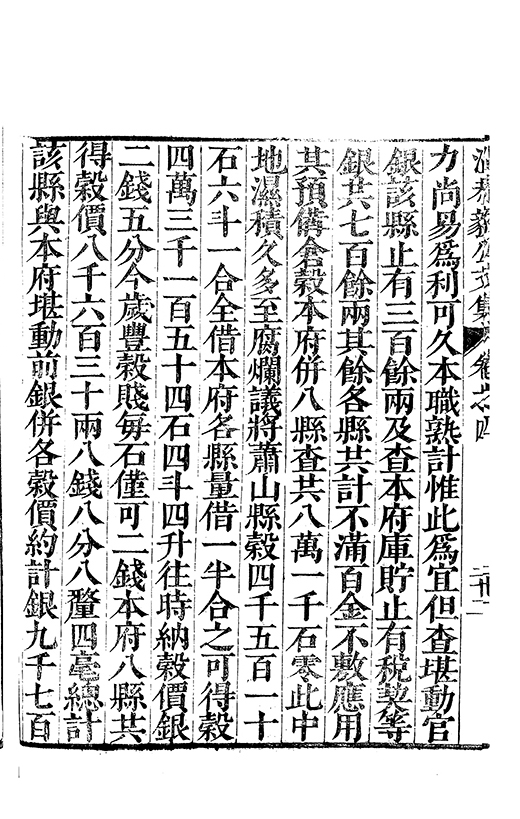 文集 卷之四
力尚易爲利可久本職熟計惟此爲宜但查堪動官
銀該縣止有三百餘兩及查本府庫貯止有稅契等
銀共七百餘兩其餘各縣共計不滿百金不敷應用
其預備倉穀本府併八縣查共八萬一千石零此中
地濕積久多至腐爛議將蕭山縣穀四千五百一十
石六斗一合全借本府各縣量借一半合之可得穀
四萬三千一百五十四石四斗四升往時納穀價銀
二錢五分今歲豐穀賤毎石僅可二錢本府八縣共
得穀價八千六百三十兩八錢八分八釐四毫總計
該縣與本府堪動前銀併各穀價約計銀九千七百